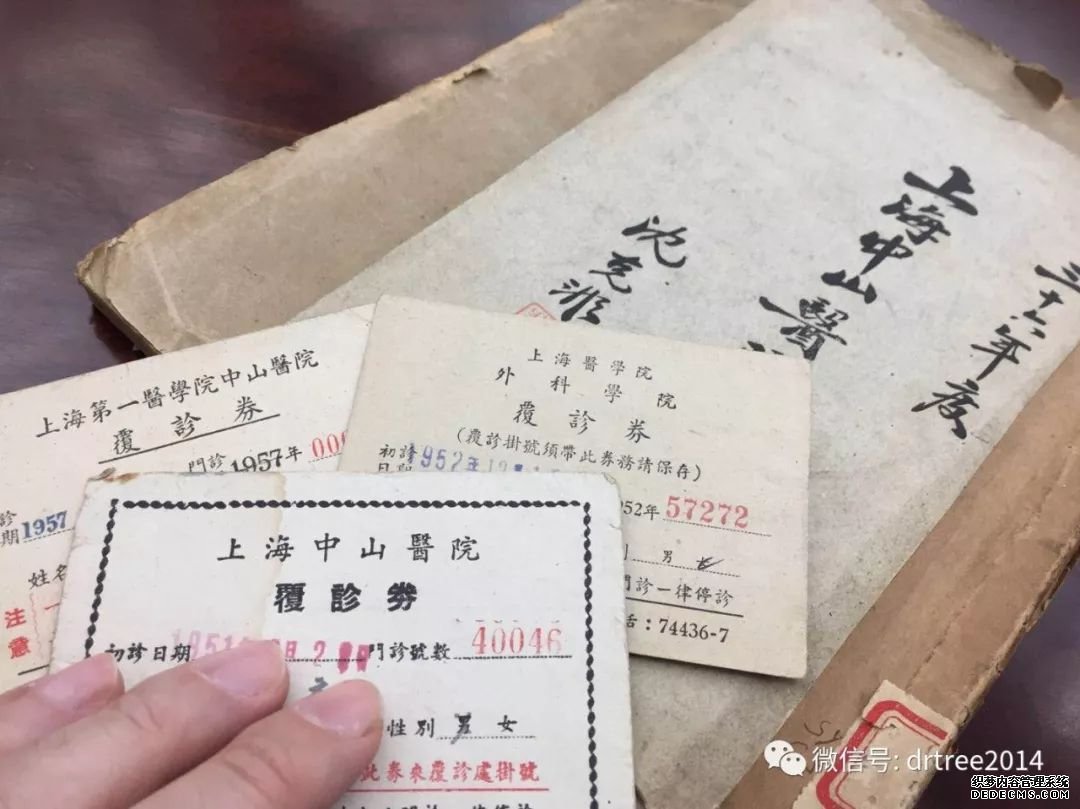 三十六年度
上海中山醫
沈克非
上海第一醫學院中山醫院
覆診券
門診 1957年 000
期 1957
姓名
注意
上海醫學院
外科學院
覆診券
(覆診掛號須帶此券務請保存)
初診 1952年
日期
952年 57272
男 女
門診一律停診
：74436-7
上海中山醫院
覆診券
初診日期 1951 月 2 門診號數 40046
性別 男 女
此券來覆診處掛號
微信号: drtree2014
织梦内容管理系统
DEDECMS.COM